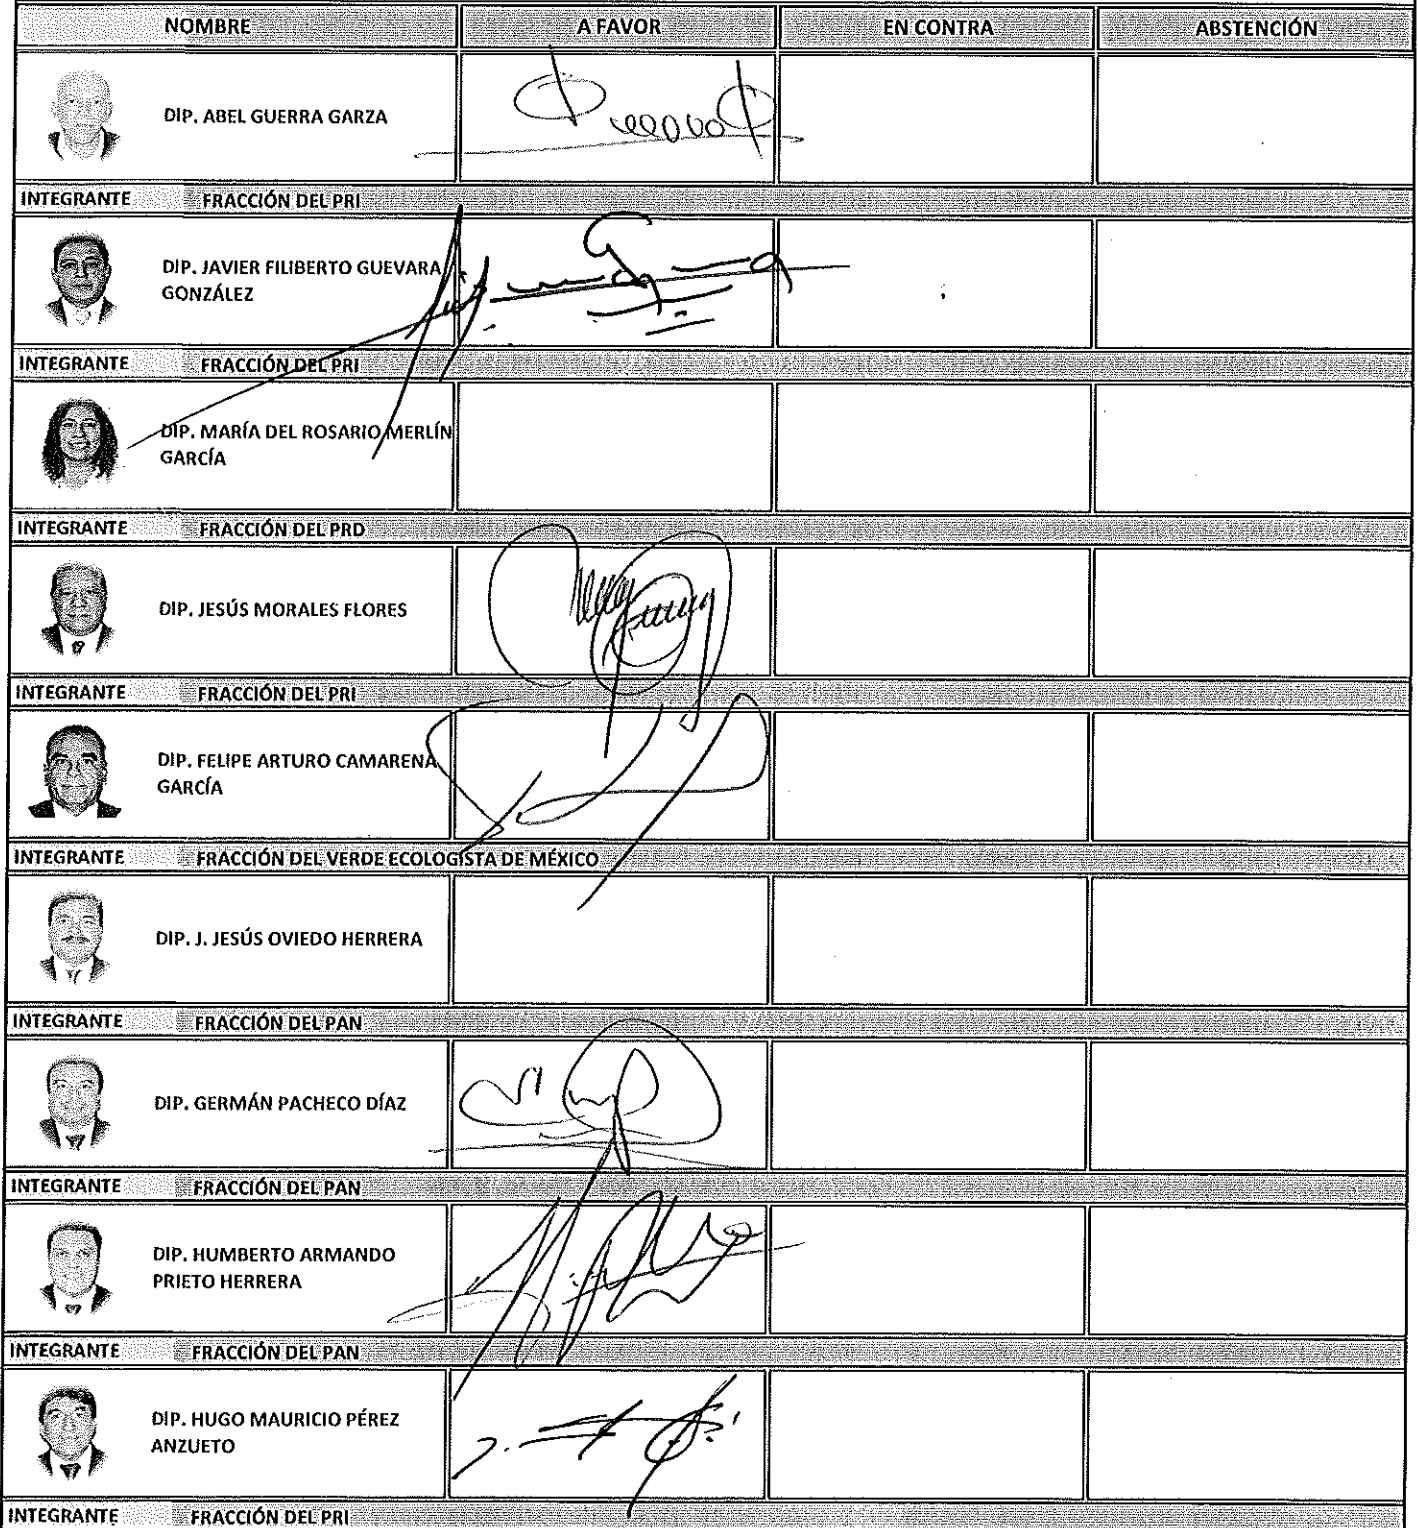 NOMBRE A FAVOR EN CONTRA ABSTENCIÓN
DIP. ABEL GUERRA GARZA
INTEGRANTE FRACCIÓN DEL PRI
DIP. JAVIER FILIBERTO GUEVARA
GONZÁLEZ
INTEGRANTE FRACCIÓN DEL PRI
DIP. MARÍA DEL ROSARIO MERLÍN
GARCÍA
INTEGRANTE FRACCIÓN DEL PRD
DIP. JESÚS MORALES FLORES
INTEGRANTE FRACCIÓN DEL PRI
DIP. FELIPE ARTURO CAMARENA
GARCÍA
INTEGRANTE FRACCIÓN DEL VERDE ECOLOGISTA DE MÉXICO
DIP. J. JESÚS OVIEDO HERRERA
INTEGRANTE FRACCIÓN DEL PAN
DIP. GERMÁN PACHECO DÍAZ
INTEGRANTE FRACCIÓN DEL PAN
DIP. HUMBERTO ARMANDO
PRIETO HERRERA
INTEGRANTE FRACCIÓN DEL PAN
DIP. HUGO MAURICIO PÉREZ
ANZUETO
INTEGRANTE FRACCIÓN DEL PRI